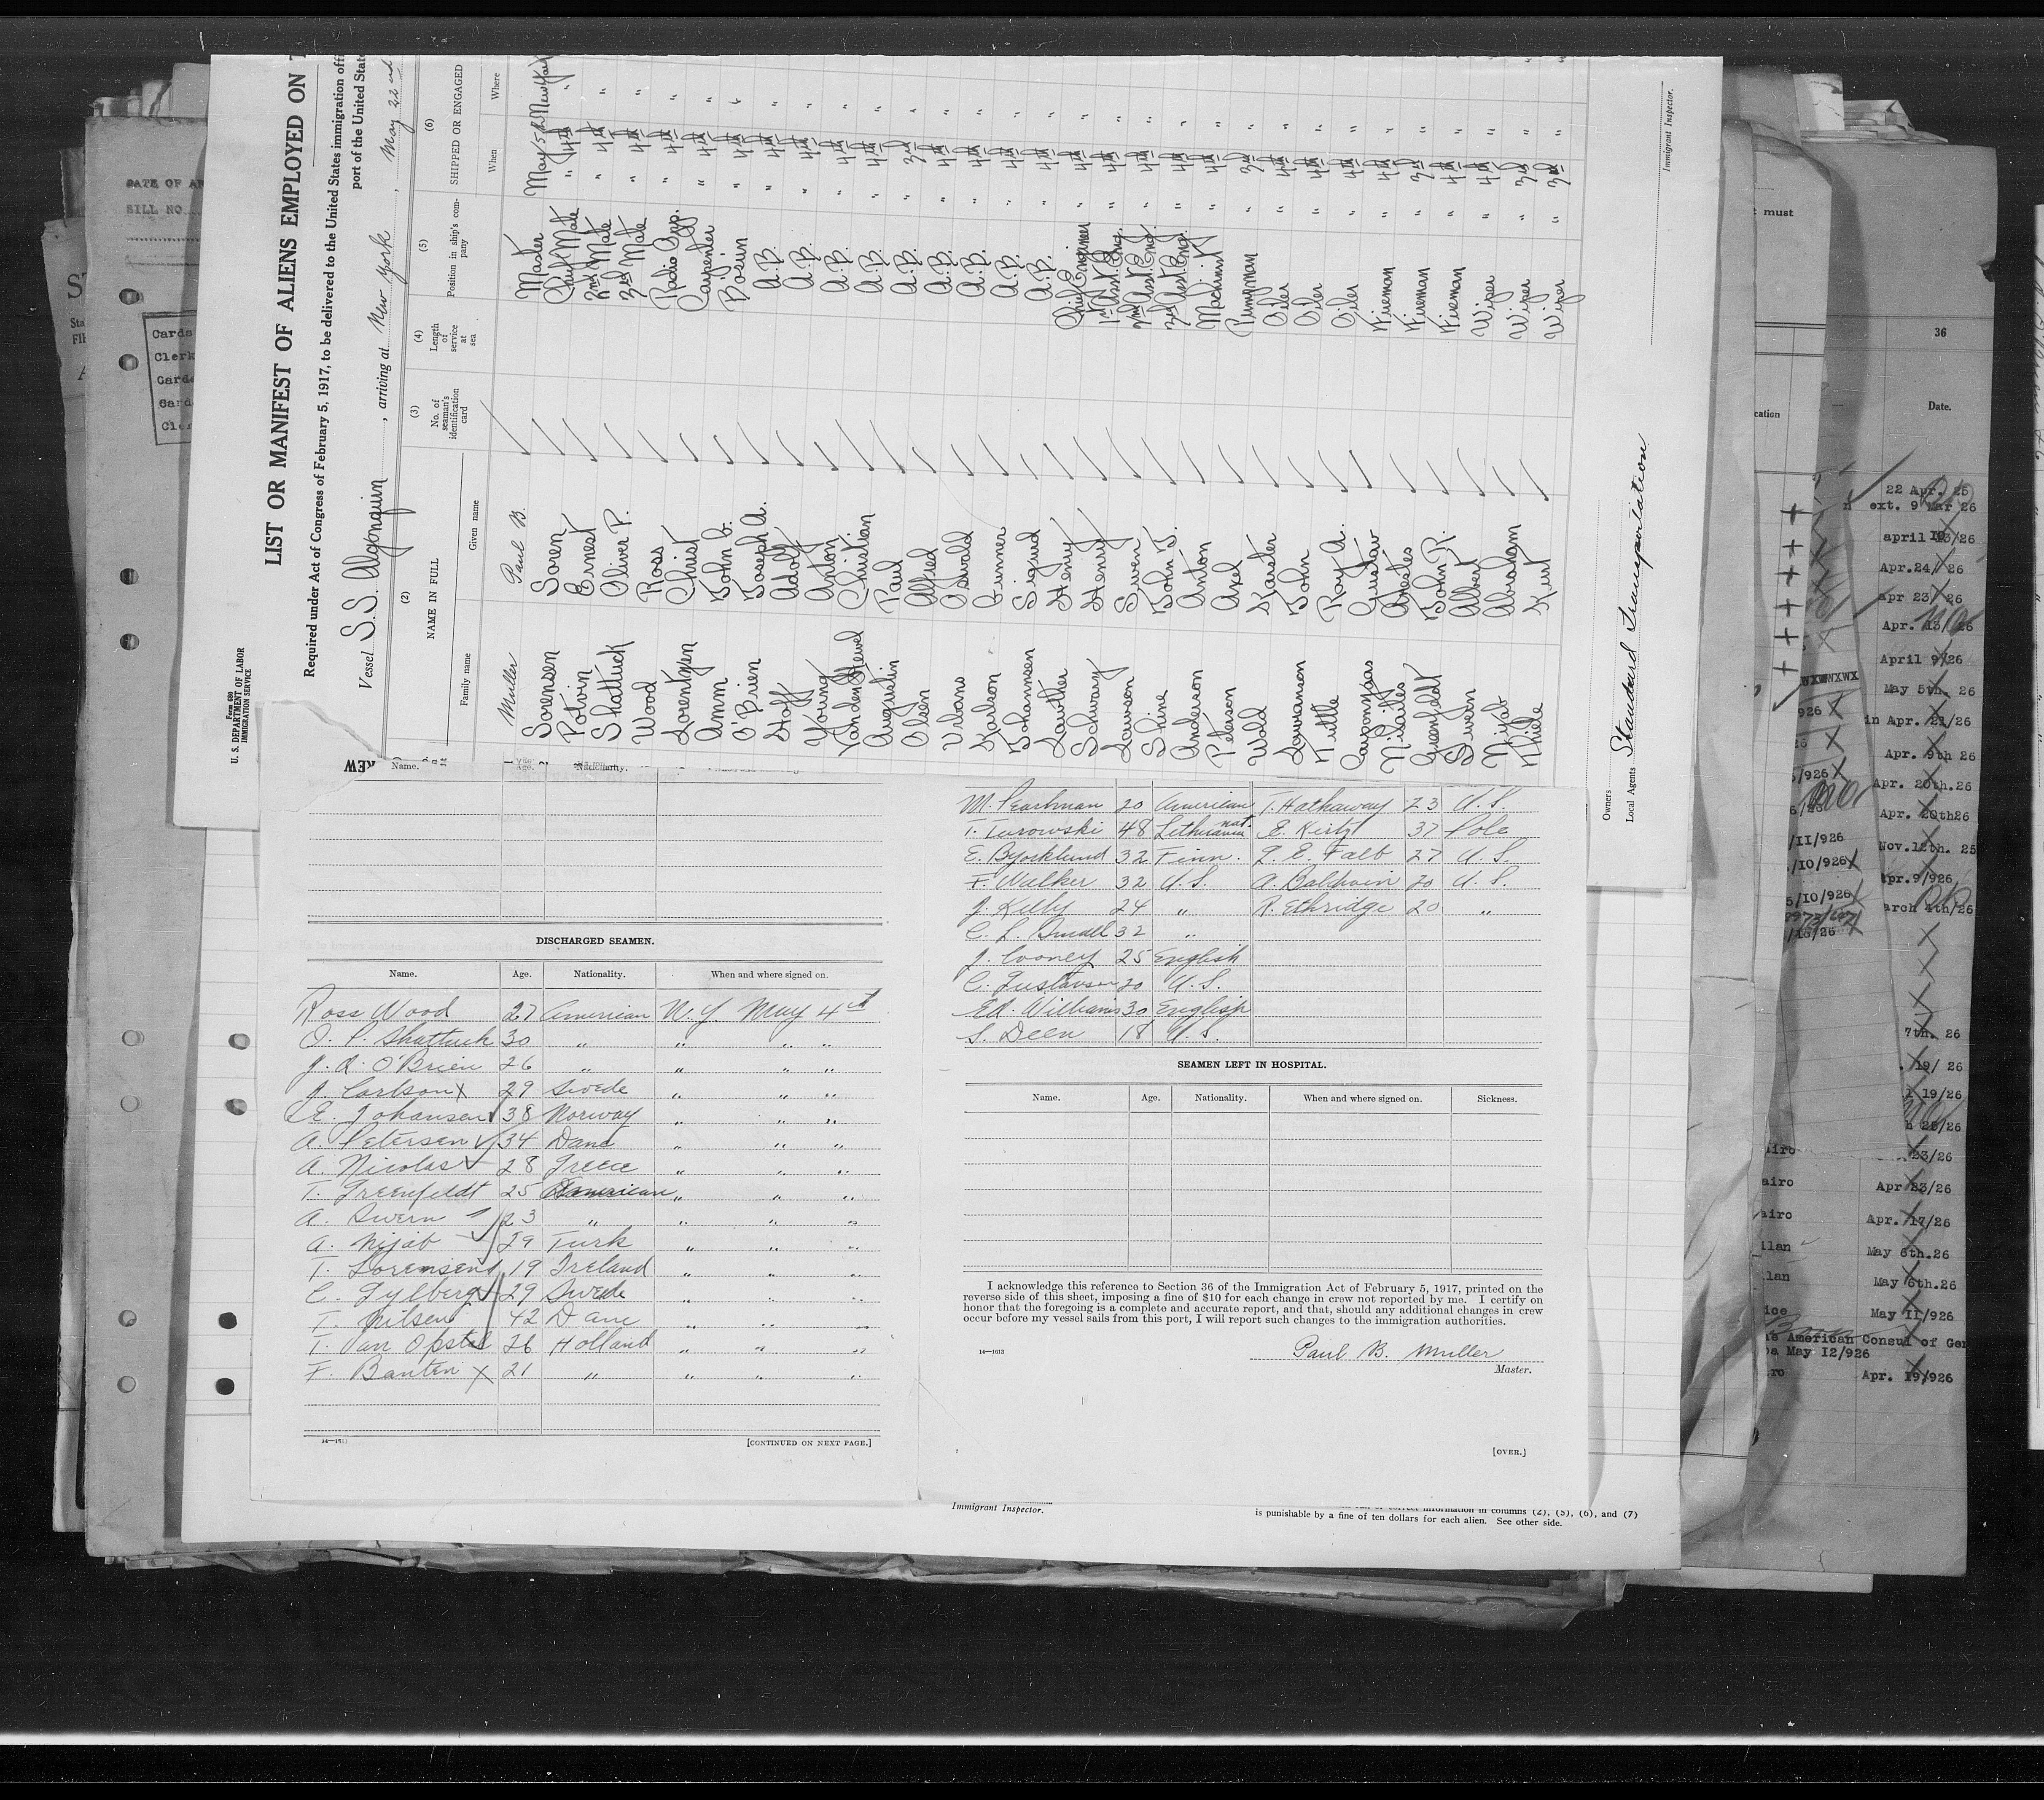 Form 680
U. S. DEPARTMENT OF LABOR
IMMIGRATION SERVICE
LIST OR MANIFEST OF ALIENS EMPLOYED ON
Required under Act of Congress of February 5, 1917, to be delivered to the United States immigration
port of the United
Vessel S.S. Algonquin, arriving at New York, May 22nd
(2) (3) (4) (5) (6)
NAME IN FULL No. of seaman's identification card Length of service at sea Position in ship's company SHIPPED OR ENGAGED
Family name Given name When Where
Muller Paul B. Master May 5th New York
Sorensen Soren Chief Mate " 4th "
Potvin Ernest 2nd Mate " 4th "
Shattuck Oliver P. 3rd Mate " 4th "
Wood Ross Radio Opp. " 4th "
Lorentzen Christ Carpenter " 4th "
Amm John G. Bos'un " 4th "
O'Brien Joseph A. A.B. " 4th "
Hoff Adolf A.B. " 4th "
Young Anton A.B. " 4th "
Vanden Christian A.B. " 4th "
Augustin Paul A.B. " 3rd "
Olsen Alfred A.B. " 4th "
Urbans Oswald A.B. " 4th "
Karlson Gunner A.B. " 4th "
Johannsen Sigurd A.B. " 4th "
Lawther Henry Chief Engineer " 4th "
Schwary Henry 1st Asst. Eng. " 4th "
Lawson Swen 2nd Asst. Eng. " 4th "
Shine John J. 3rd Asst. Eng. " 4th "
Anderson Anton Machinist " 4th "
Peterson Axel Pumpman " 3rd "
Wald Karster Oiler " 4th "
Lawranson John Oiler " 4th "
Kuttle Roy A. Oiler " 4th "
Gustav Fireman " 4th "
Fireman " 3rd "
Greenfeldt John P. Fireman " 4th "
Swern Albert Wiper " 4th "
Nijab Abraham Wiper " 3rd "
Thiele Kurt Wiper " 3rd "
Owners
Local Agents Standard Transportation
Immigrant Inspector.
Name. Age. Nationality.
DISCHARGED SEAMEN.
Name. Age. Nationality. When and where signed on.
Ross Wood 27 American N.Y. May 4th
O. P. Shattuck 30 " " " "
J. A. O'Brien 26 " " " "
J. Carlson X 29 Swede " " "
E. Johansen 38 Norway " " "
A. Petersen 34 Dane " " "
A. Nicolas 28 Greece " " "
T. Greenfeldt 25 American " " "
A. Swern 23 " " " "
A. Nijab 29 Turk " " "
T. Lorensens 19 Ireland " " "
C. Fylberg 29 Swede " " "
T. Nilsen 42 Dane " " "
T. Van Opstal 26 Holland " " "
F. Banten X 21 " " " "
14—1613
[CONTINUED ON NEXT PAGE.]
M. Pearlman 20 American T. Hathaway 23 U.S.
T. Turowski 48 Lithuania nat. E. Kirtz 37 Pole
E. Byorklund 32 Finn. L. E. Falb 27 U.S.
F. Walker 32 U.S. A. Baldwin 20 U.S.
J. Kelly 24 " R. Ethridge 20 "
C. L. 32 "
J. Cooney 25 English
C. Gustavson 20 U.S.
Ed. Williams 30 English
S. Deen 18 U.S.
SEAMEN LEFT IN HOSPITAL.
Name. Age. Nationality. When and where signed on. Sickness.
I acknowledge this reference to Section 36 of the Immigration Act of February 5, 1917, printed on the
reverse side of this sheet, imposing a fine of $10 for each change in crew not reported by me. I certify on
honor that the foregoing is a complete and accurate report, and that, should any additional changes in crew
occur before my vessel sails from this port, I will report such changes to the immigration authorities.
14—1613
Paul B. Muller
Master.
[OVER.]
Immigrant Inspector.
is punishable by a fine of ten dollars for each alien. See other side.
must
36
Date.
22 Apr. 25
ext. 9 Mar 26
Apr.24/ 26
apr 23/ 26
Apr. 13/ 26
April 9/26
May 5th. 26
in Apr. 21/26
Apr. 9th 26
Apr. 20th.26
Apr. 20th26
Nov.12th. 25
Apr.9/926
arch 4th/26
7th. 26
19/ 26
19/26
23/26
Apr 23/26
Apr. 17/26
May 6th.26
May 6th.26
May 11/926
American Consul of
May 12/926
Apr. 19/926